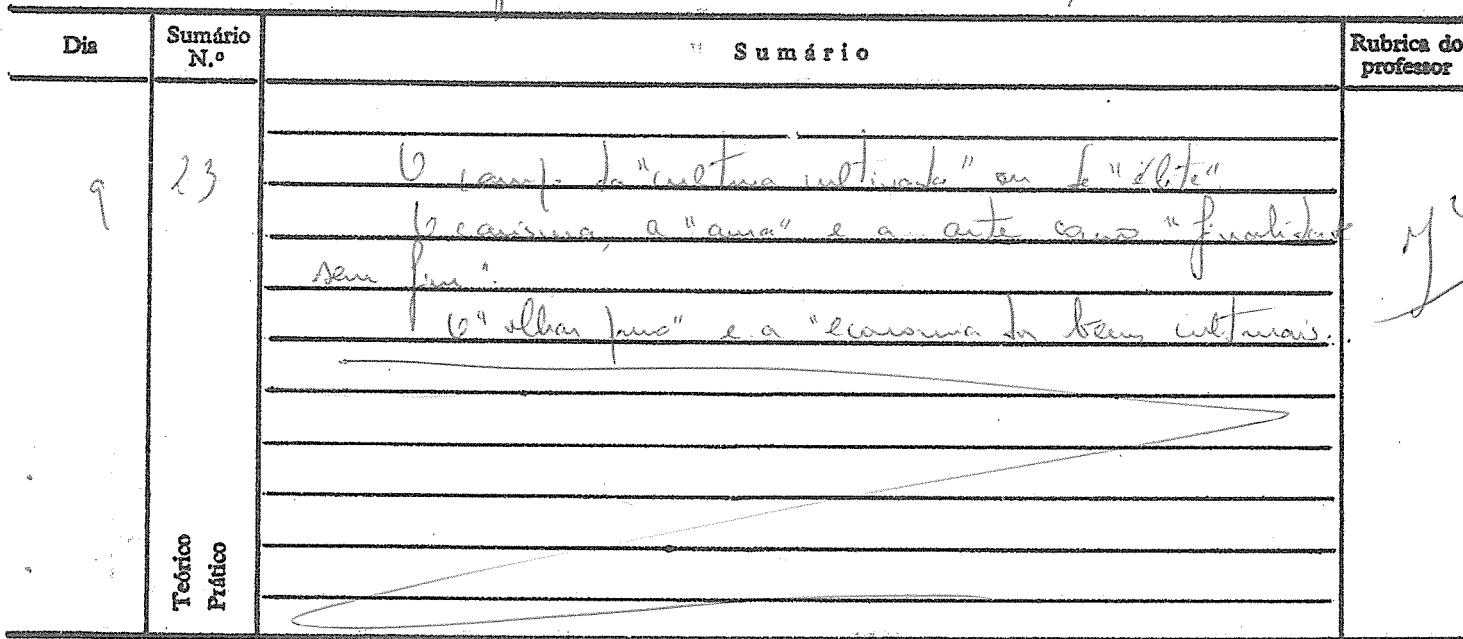 Dia
Sumário N.º
Sumário
Rubrica do professor
9
23
O campo da "cultura cultivada" ou de "élite"
O carisma, a "aura" e a arte como "finalidade
sem fim".
O "olhar puro" e a "economia dos bens culturais.
Teórico
Prático